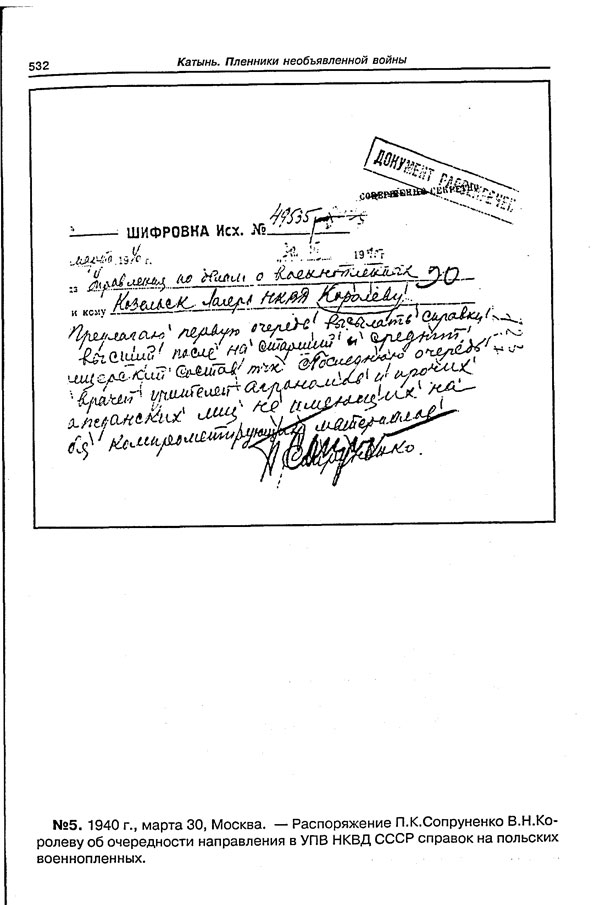 532
Катынь. Пленники необъявленной войны
ДОКУМЕНТ РАССЕКРЕЧЕН
СОВЕРШЕННО СЕКРЕТНО
ШИФРОВКА Исх. № 49535
194 г. 30 III 194 г.
Управления по делам о военнопленных 30
и кому Козельск лагерь НКВД Королеву
Предлагаю первую очередь высылать справки
высший после на старший и средний
ицерский состав тчк Последнюю очередь
врачей учителей агрономов и прочих
анских лиц не имеющих на
компрометирующих материалов
Сопруненко.
№5. 1940 г., марта 30, Москва. — Распоряжение П.К.Сопруненко В.Н.Ко-
ролеву об очередности направления в УПВ НКВД СССР справок на польских
военнопленных.